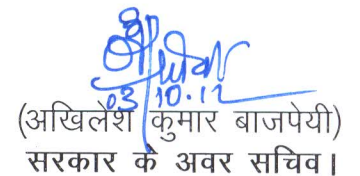 03/10.12
(अखिलेश कुमार बाजपेयी)
सरकार के अवर सचिव।